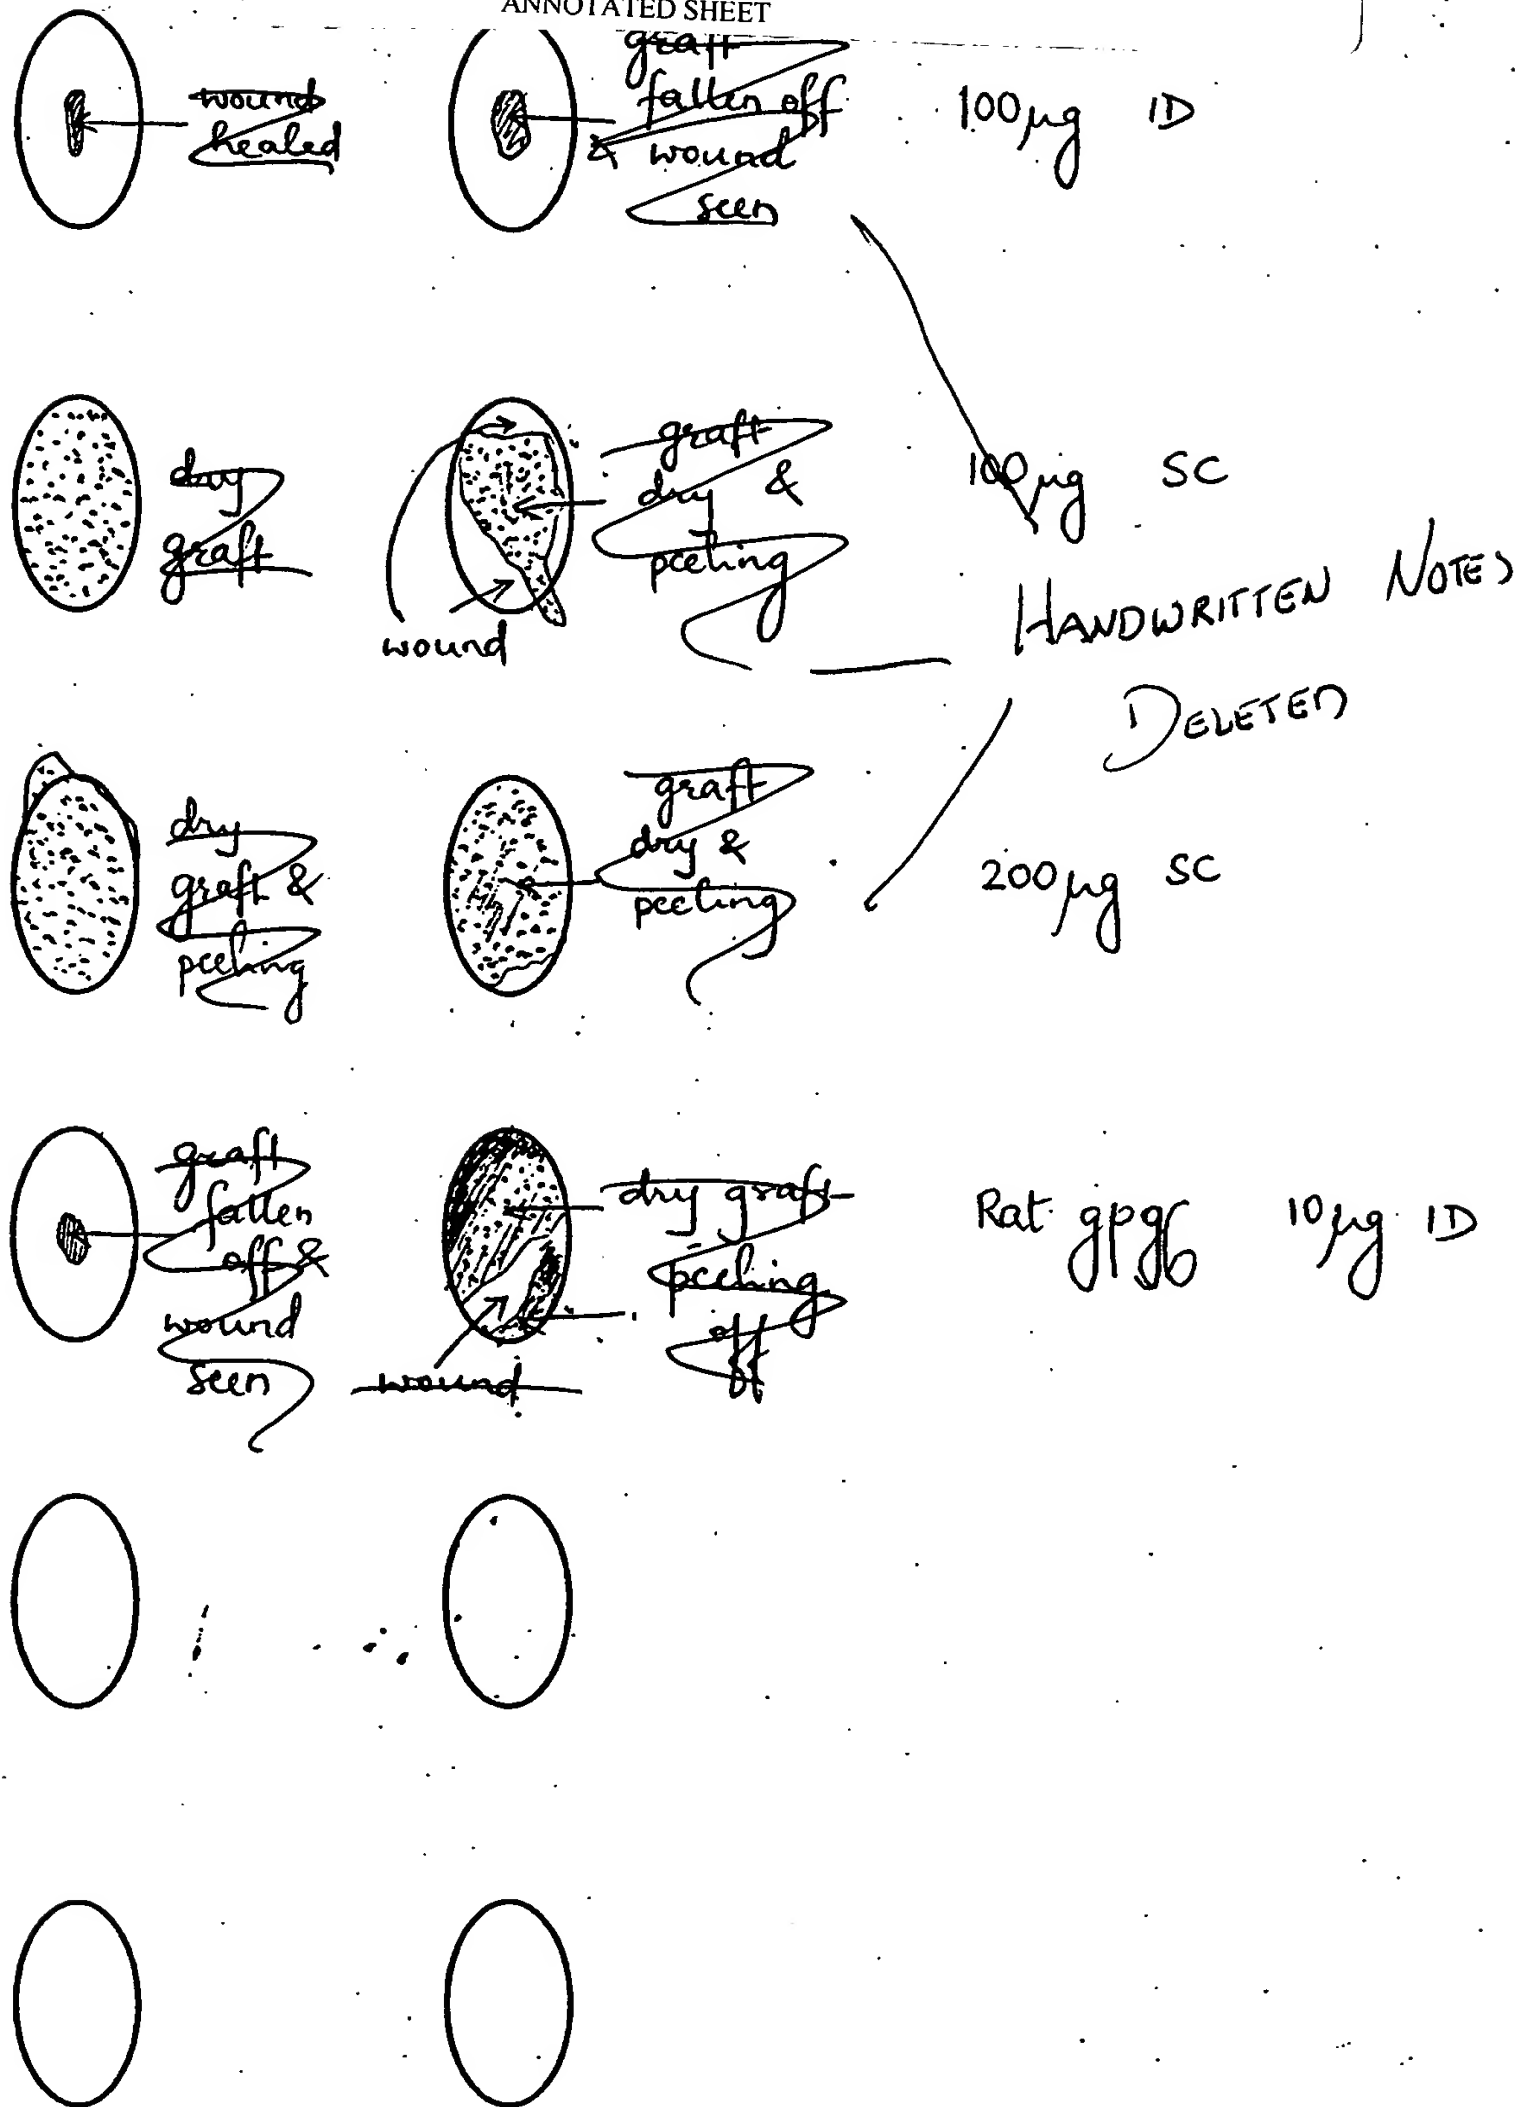 ANNOTATED SHEET
wound
healed
graft
fallen off
& wound
seen
100µg ID
dry
graft
wound
graft
dry &
peeling
100µg SC
HANDWRITTEN NOTES
DELETED
dry
graft &
peeling
graft
dry &
peeling
200µg SC
graft
fallen
off &
wound
seen
wound
dry graft
peeling
off
Rat gpg6 10µg ID